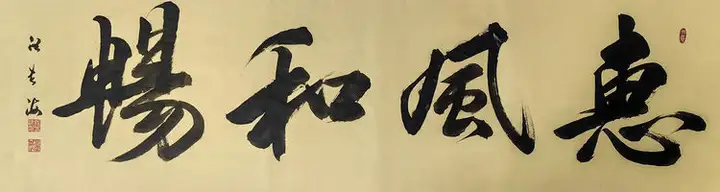 惠風和暢